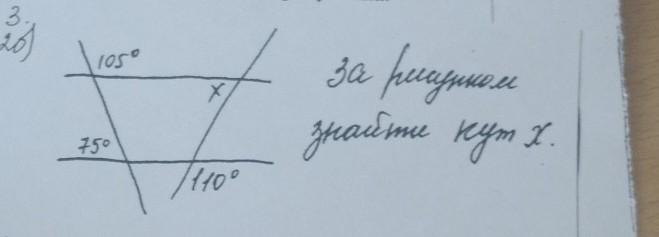 3.
2б)
105°
x
75°
110°
За рисунком
знайти кут x.